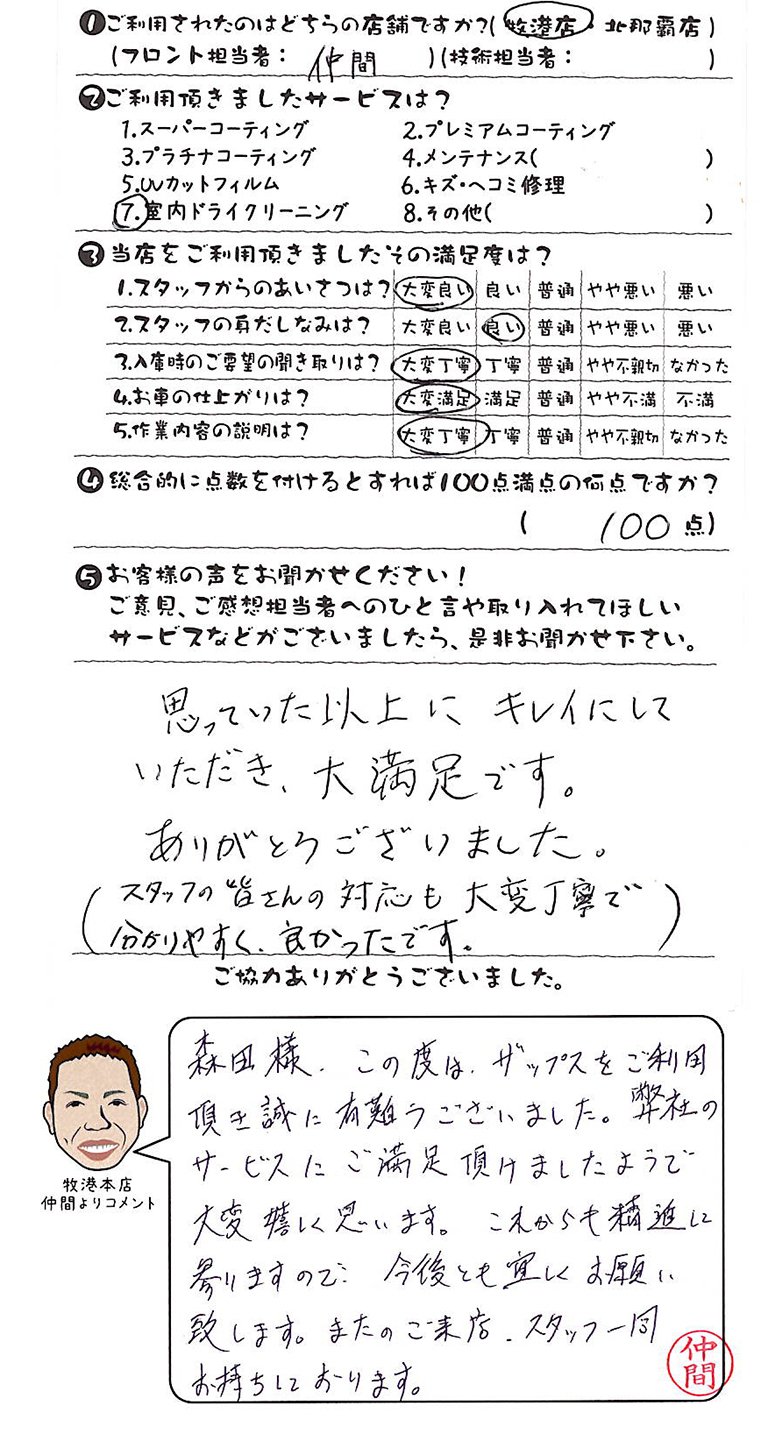 ❶ご利用されたのはどちらの店舗ですか?(牧港店・北那覇店)
(フロント担当者: 仲間 )(技術担当者: )
❷ご利用頂きましたサービスは?
1.スーパーコーティング 2.プレミアムコーティング
3.プラチナコーティング 4.メンテナンス( )
5.UVカットフィルム 6.キズ・ヘコミ修理
7.室内ドライクリーニング 8.その他( )
❸当店をご利用頂きましたその満足度は?
1.スタッフからのあいさつは? 大変良い 良い 普通 やや悪い 悪い
2.スタッフの身だしなみは? 大変良い 良い 普通 やや悪い 悪い
3.入庫時のご要望の聞き取りは? 大変丁寧 丁寧 普通 やや不親切 なかった
4.お車の仕上がりは? 大変満足 満足 普通 やや不満 不満
5.作業内容の説明は? 大変丁寧 丁寧 普通 やや不親切 なかった
❹総合的に点数を付けるとすれば100点満点の何点ですか?
( 100点)
❺お客様の声をお聞かせください!
ご意見、ご感想担当者へのひと言や取り入れてほしい
サービスなどがございましたら、是非お聞かせ下さい。
思っていた以上に キレイにして
いただき、大満足です。
ありがとうございました。
(スタッフの皆さんの対応も大変丁寧で
分かりやすく、良かったです。)
ご協力ありがとうございました。
森田様、この度は、ザップスをご利用
頂き誠に有難うございました。弊社の
サービスにご満足頂けましたようで
大変嬉しく思います。これからも精進に
参りますので、今後とも宜しくお願い
致します。またのご来店、スタッフ一同
お待ちしております。
牧港本店
仲間よりコメント
仲間